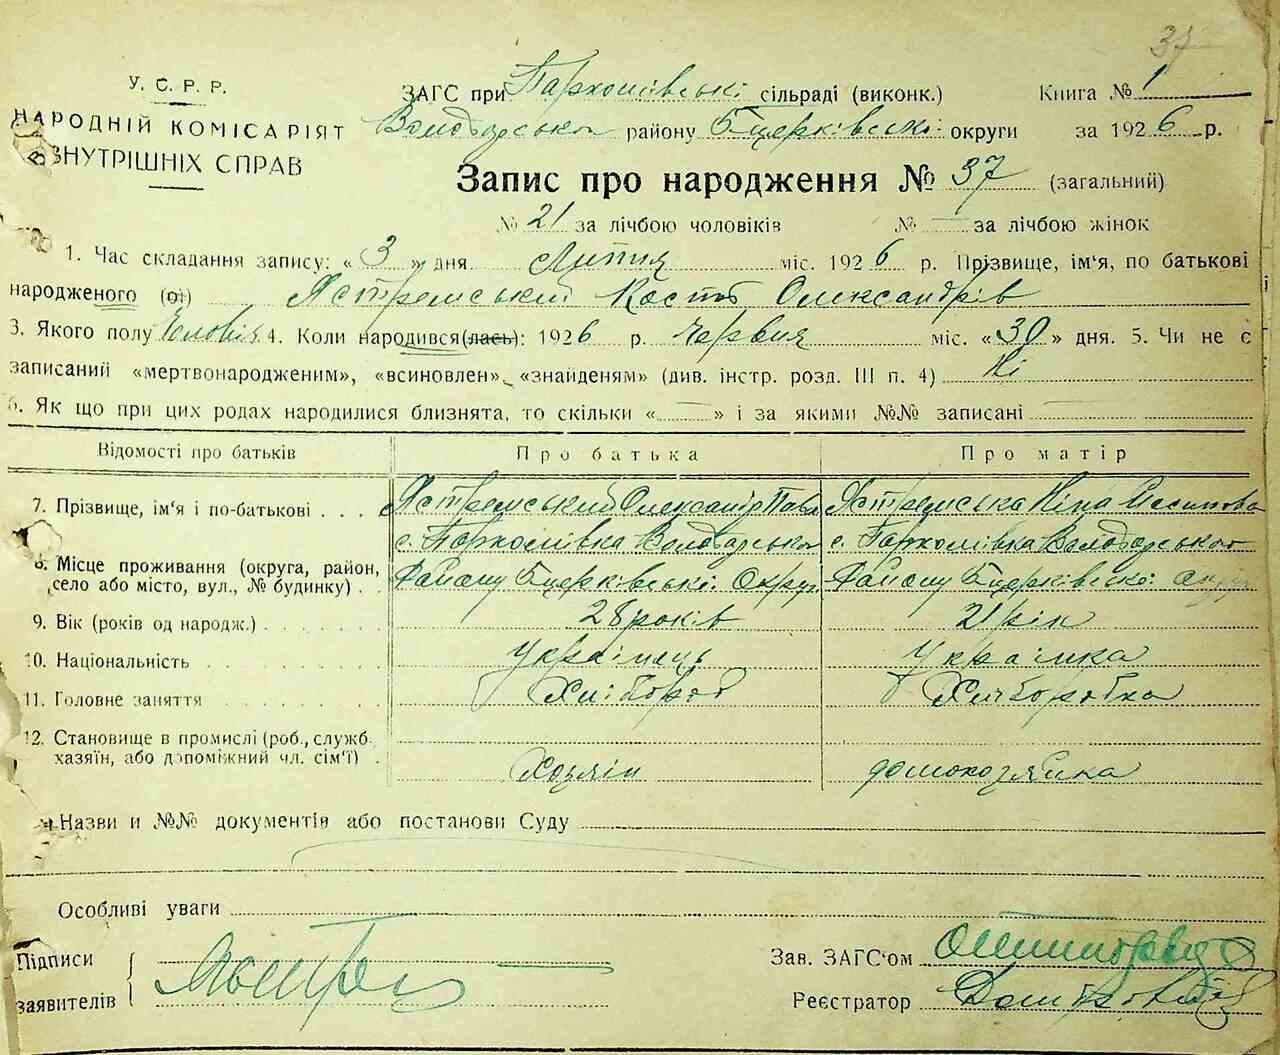 37
У. С. Р. Р.
НАРОДНІЙ КОМІСАРІЯТ
ВНУТРІШНІХ СПРАВ
ЗАГС при Пархомівські сільраді (виконк.) Книга № 1
Володарськом району Бцерківські: округи за 1926 р.
Запис про народження № 37 (загальний)
№ 21 за лічбою чоловіків № — за лічбою жінок
1. Час складання запису: « 3 » дня Липня міс. 1926 р. Прізвище, ім'я, по батькові
народженого (ої) Ястремський Костя Олександрів
3. Якого полу Человіч 4. Коли народився(лась): 1926 р. Червня міс. «30» дня. 5. Чи не є
записаний «мертвонародженим», «всиновлен», «знайденям» (див. інстр. розд. III п. 4) Ні
6. Як що при цих родах народилися близнята, то скільки « — » і за якими №№ записані —
Відомості про батьків Про батька Про матір
7. Прізвище, ім'я і по-батькові . . . Ястремський Олександр Павл Ястремська Ніна
с. Пархомівка Володарськом с. Пархомівка Володарського
8. Місце проживання (округа, район, село або місто, вул., № будинку) . . Району Бцерківські: Округ. Району Бцерківські:
9. Вік (років од народж.) . . . . . . 28 років 21 рік
10. Національність . . . . . . . . Українець Українка
11. Головне заняття . . . . . . . Хлібороб Хліборобка
12. Становище в промислі (роб., служб. хазяїн, або допоміжний чл. сім'ї) . Хозяін домохозяйка
Назви и №№ документів або постанови Суду
Особливі уваги
Підписи
заявителів
Зав. ЗАГС'ом
Реєстратор